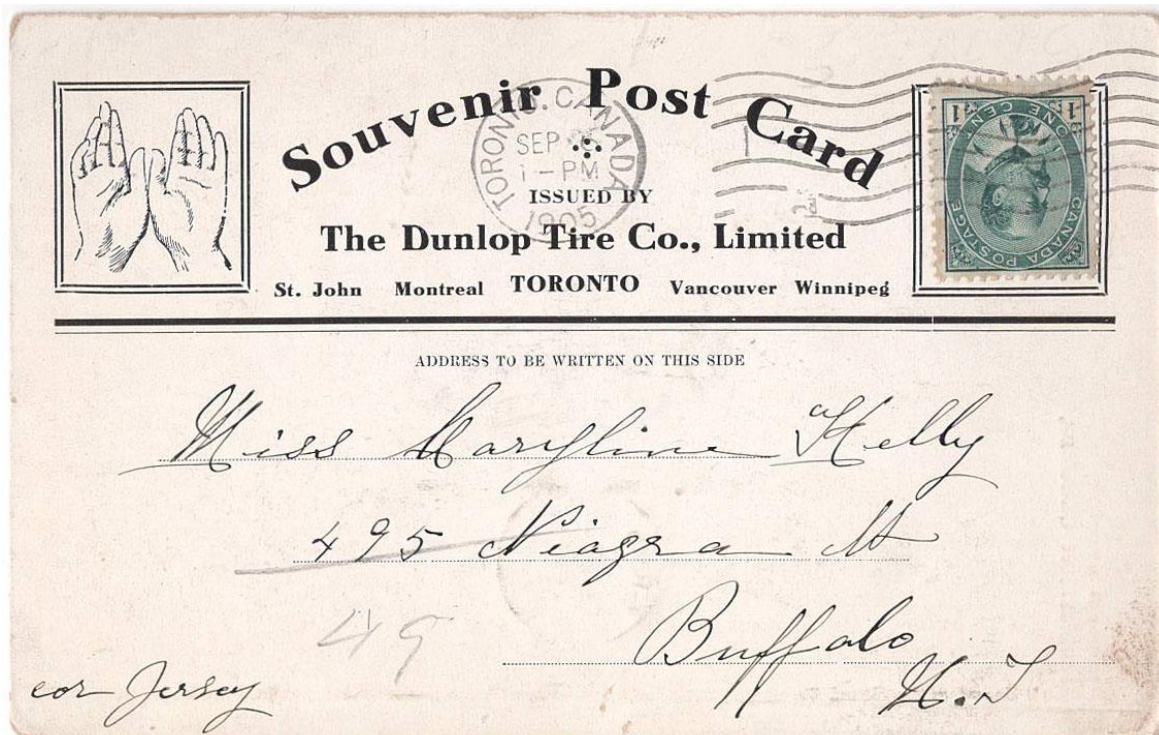 Souvenir Post Card
TORONTO. CANADA
SEP
1-PM
1905
ISSUED BY
The Dunlop Tire Co., Limited
St. John Montreal TORONTO Vancouver Winnipeg
CANADA POSTAGE
ONE CENT
1 1
ADDRESS TO BE WRITTEN ON THIS SIDE
Miss Maryline Kelly
495 Niagra St
49
Buffalo
N.Y
cor Jersey